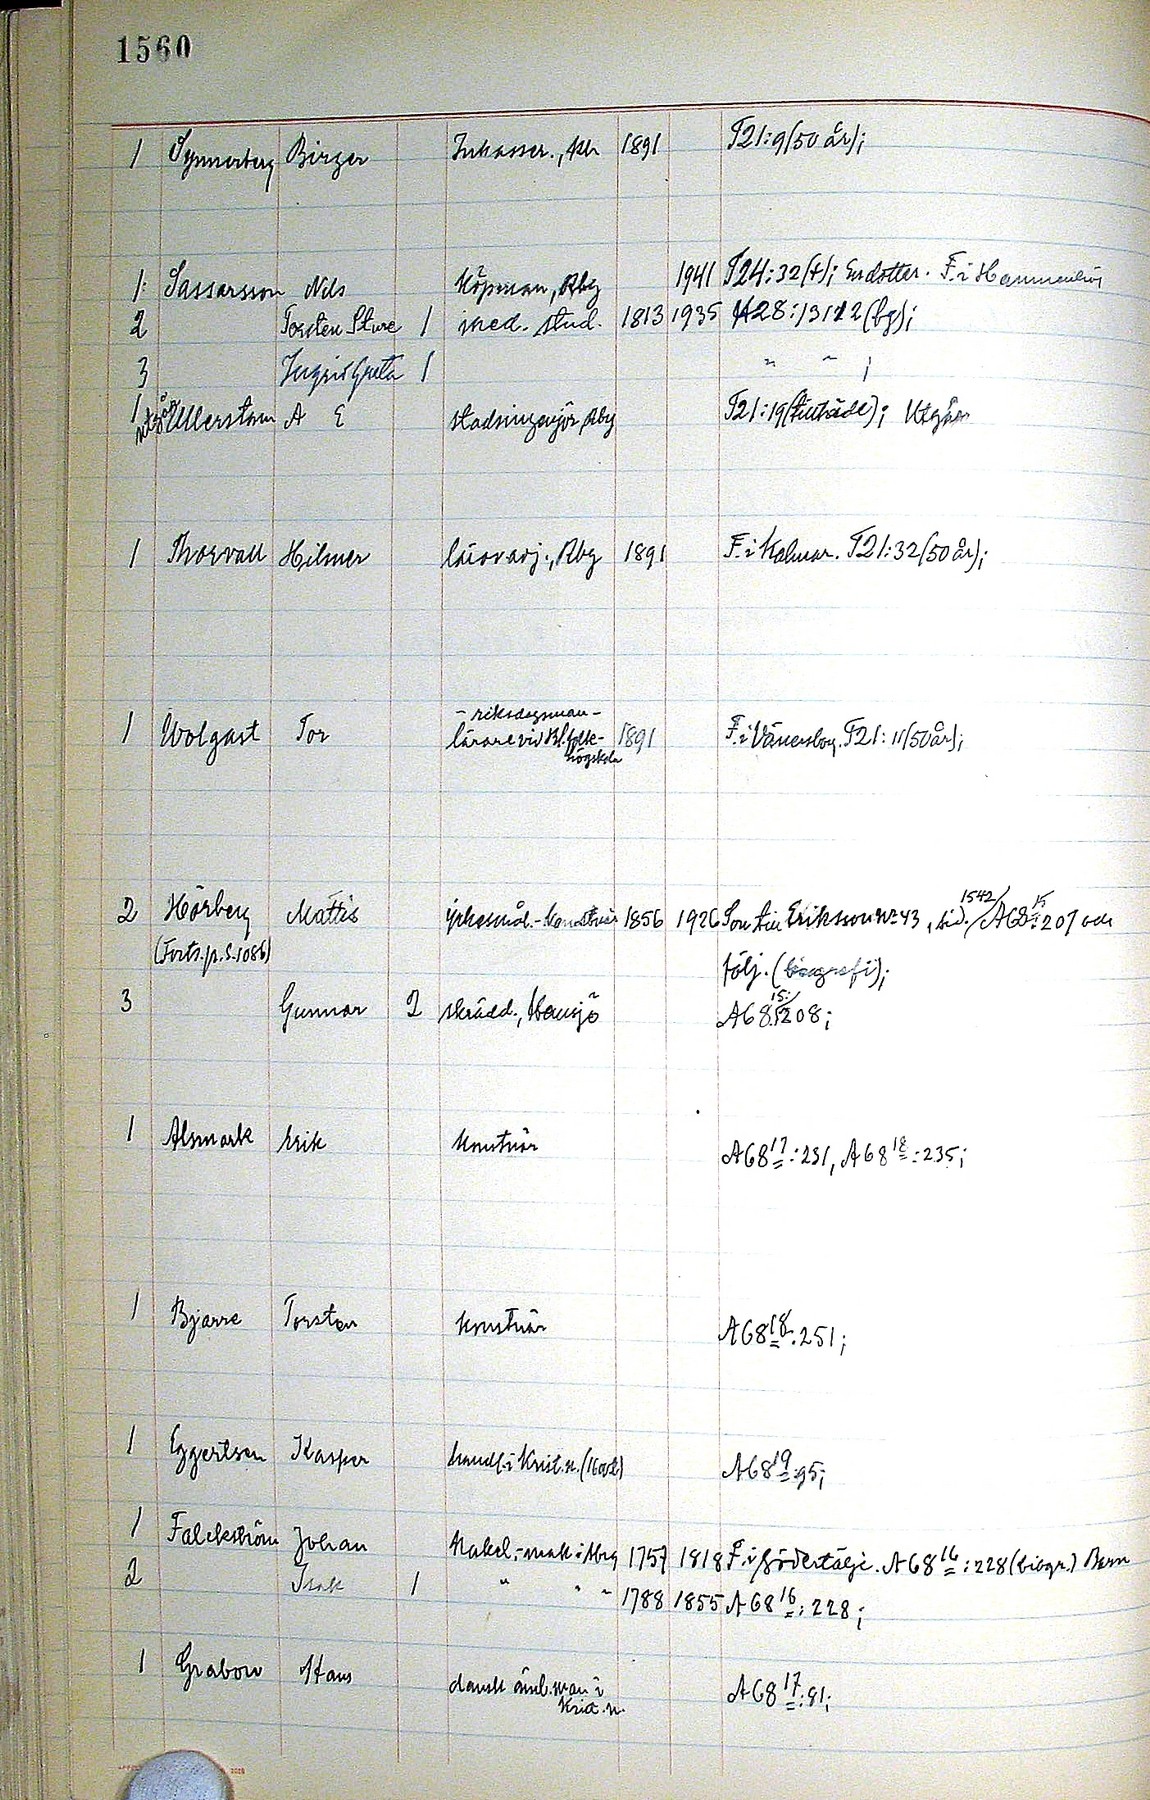 1560
1 Synnerberg Birger Inkasser., Kbr 1891 T21:9(50 år);
1 Sassarsson Nils Köpman, Rbg 1941 T24:32(†); Endotter. F. i Hammenhög
2 Torsten Sture 1 med. stud. 1813 1935 A28:13112(bg);
3 Ingrid Greta 1 " " ;
1 Ullerstam A E stadsingenjör Rbg T21:19(Inträde); Utgår
utgår
1 Thorvall Hilmer lärov.adj., Rbg 1891 F. i Kalmar. T21:32(50 år);
- riksdagsman -
1 Wolgast Tor lärare vid Bl. folk- 1891 F. i Vänersborg. T21:11(50 år);
högskola
2 Hörberg Mattis yrkesmål.-konstnär 1856 1926 Son till Eriksson nr 43, sid. 1542/A68 15:207 och
(Forts. fr. s. 1086) följ. (biografi);
3 Gunnar 2 skrädd., Hemsjö A68 15:208;
1 Alsmark Erik konstnär A68 17:231, A68 18:235;
1 Bjarre Torsten konstnär A68 18:251;
1 Eggertsen Kasper handl. i Krist.n. A68 19:95;
1 Falckström Johan Kakel.-mak. i Rbg 1757 1818 F. i Södertälje. A68 16:228(biogr.) Barn
2 Isak 1 " " " 1788 1855 A68 16:228;
1 Grabow Hans dansk ämb.man i A68 17:81;
Krist.n.